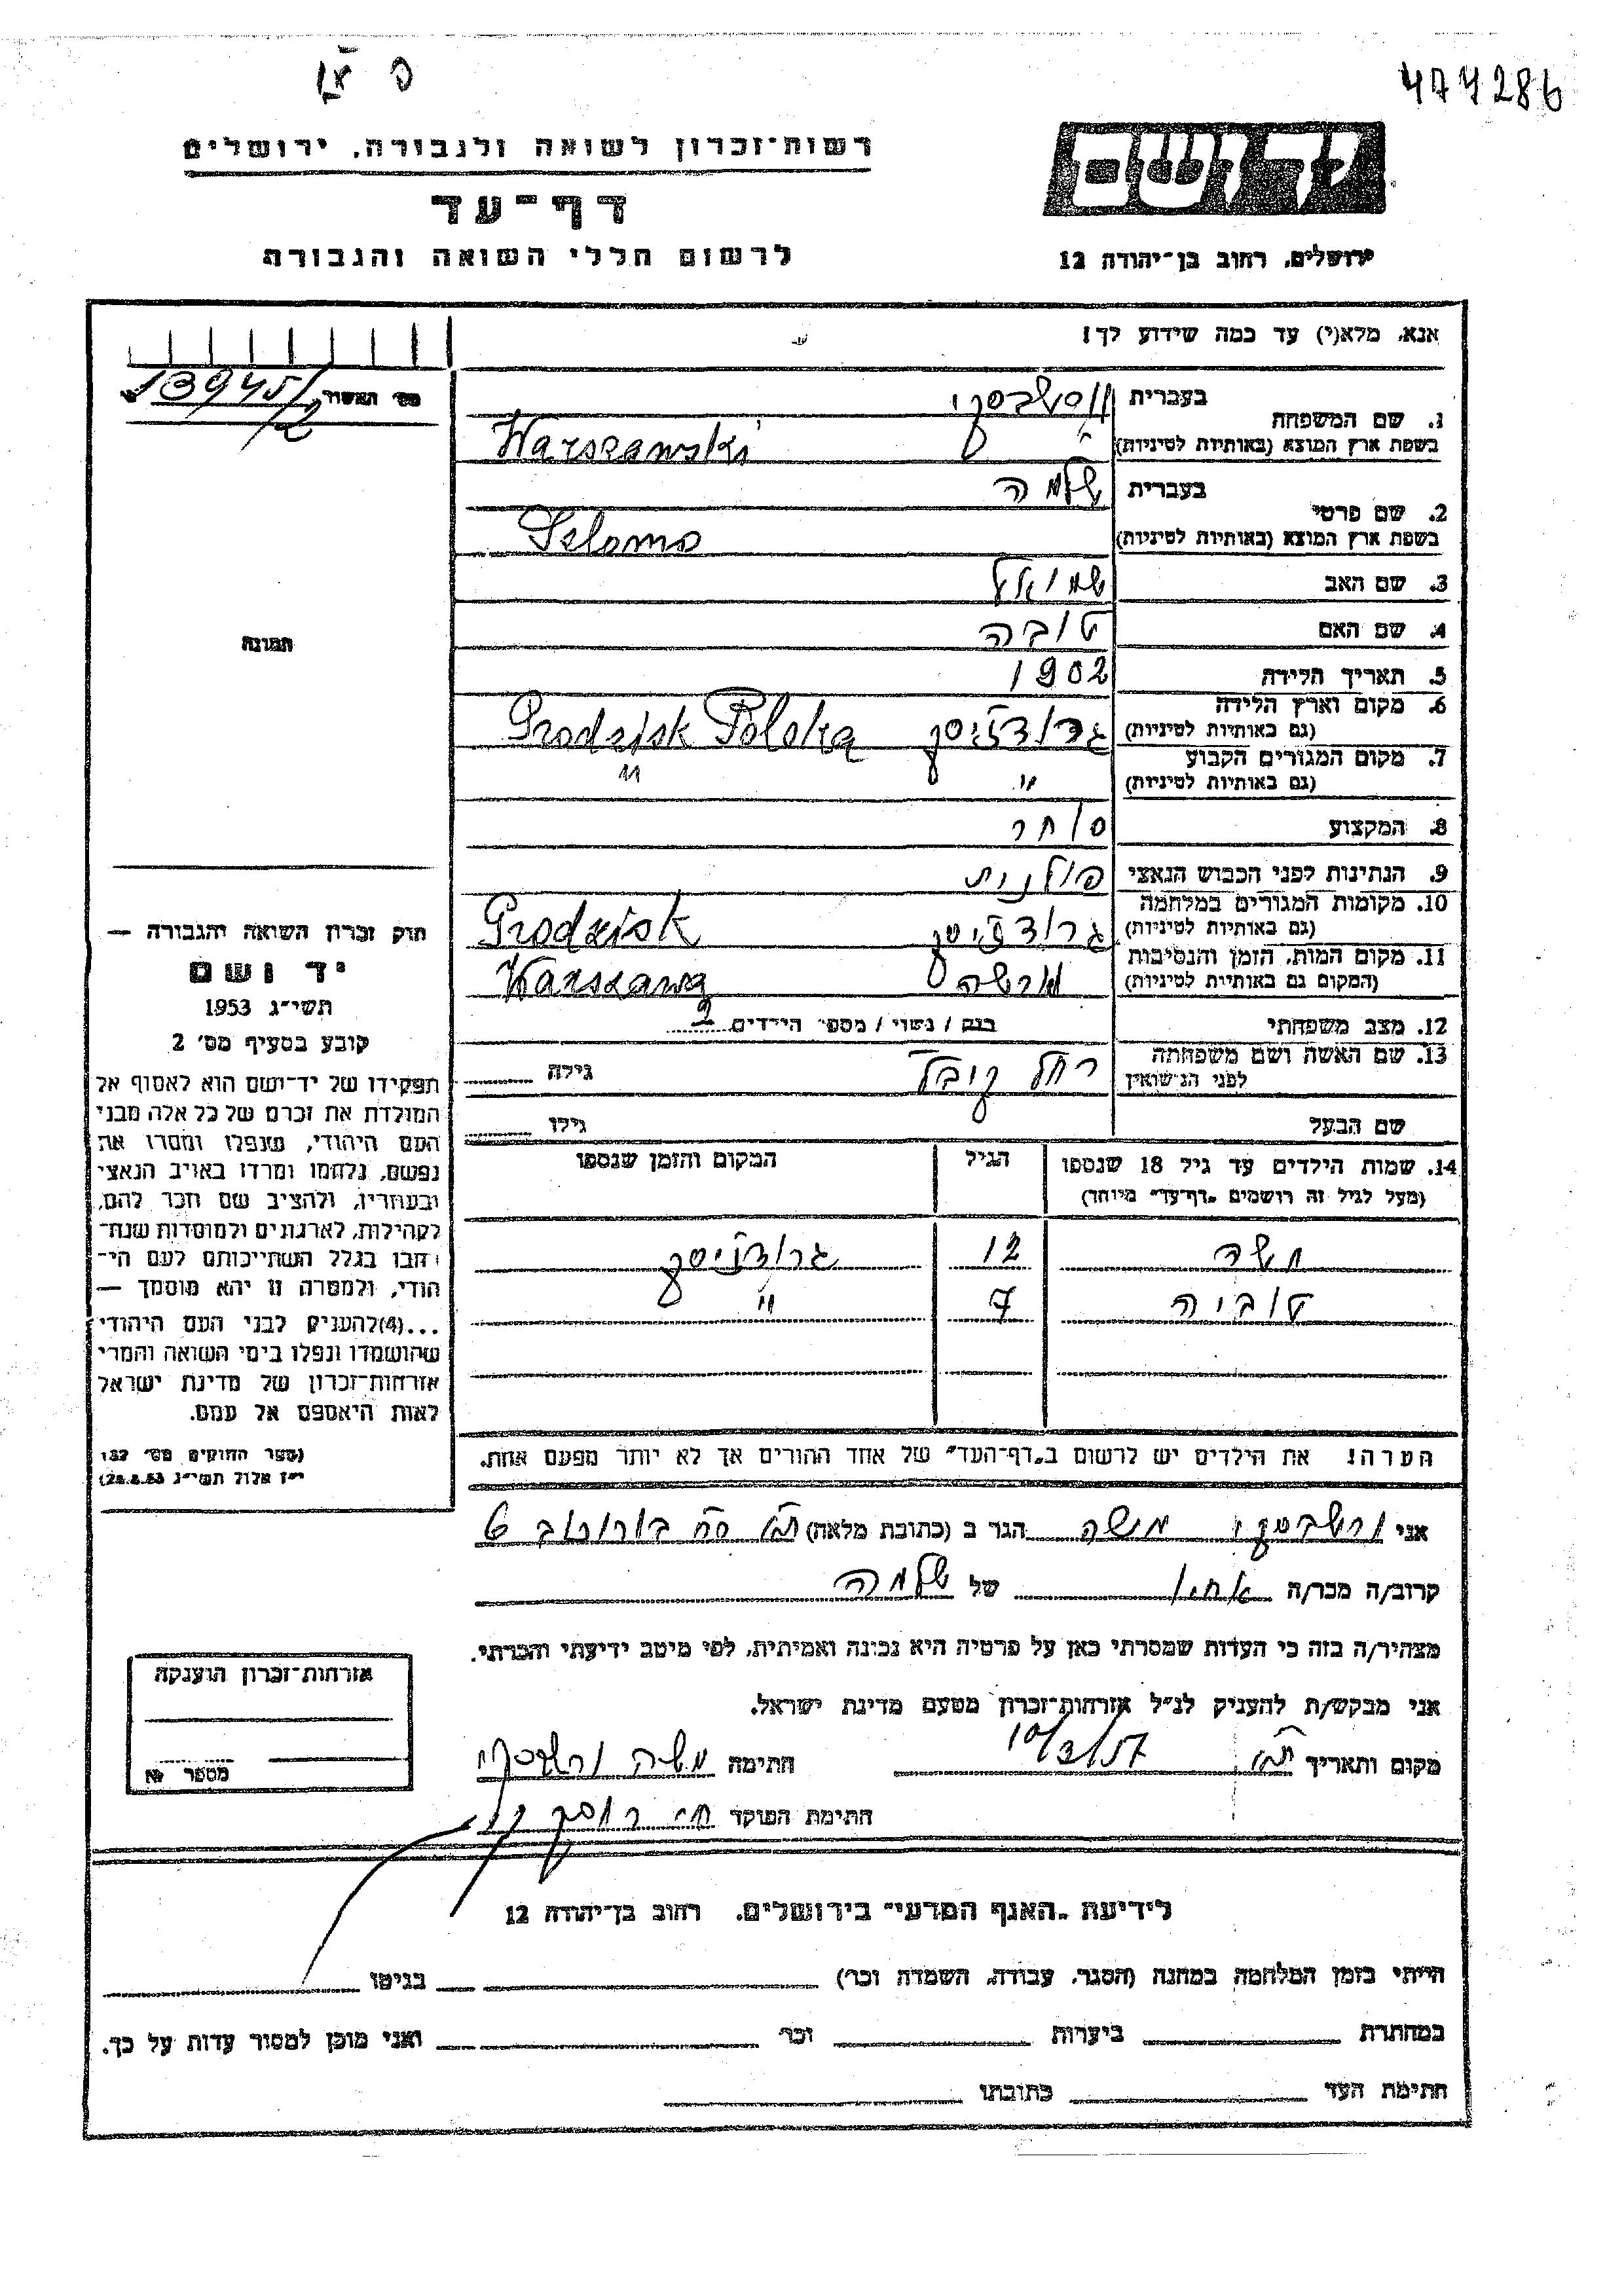 474286
רשות־זכרון לשואה ולגבורה, ירושלים
יד ושם
דף־עד
לרשום חללי השואה והגבורה
ירושלים, רחוב בן־יהודה 12
אנא, מלא(י) עד כמה שידוע לך!
מס׳ האשור 13945/2
1. שם המשפחה בעברית
בשפת ארץ המוצא (באותיות לטיניות) Warszawski
2. שם פרטי בעברית שלמה
בשפת ארץ המוצא (באותיות לטיניות) Szlomo
3. שם האב שמואל
4. שם האם טובה
תמונה
5. תאריך הלידה 1902
6. מקום וארץ הלידה (גם באותיות לטיניות) גרודזיסק Grodzisk Polska
7. מקום המגורים הקבוע (גם באותיות לטיניות) " "
8. המקצוע סוחר
9. הנתינות לפני הכבוש הנאצי פולנית
10. מקומות המגורים במלחמה (גם באותיות לטיניות) גרודזיסק Grodzisk
11. מקום המות, הזמן והנסיבות (המקום גם באותיות לטיניות) ורשה Warszawa
12. מצב משפחתי רווק / נשוי / מספר הילדים 2
13. שם האשה ושם משפחתה לפני הנישואין רחל גילה
שם הבעל גילו
14. שמות הילדים עד גיל 18 שנספו הגיל המקום והזמן שנספו
(מעל לגיל זה רושמים „דף־עד״ מיוחד)
12 גרודזיסק
טוביה 7 "
הערה! את הילדים יש לרשום ב„דף־העד״ של אחד ההורים אך לא יותר מפעם אחת.
חוק זכרון השואה והגבורה —
יד ושם
תשי״ג 1953
קובע בסעיף מס׳ 2
תפקידו של יד־ושם הוא לאסוף אל
המולדת את זכרם של כל אלה מבני
העם היהודי, שנפלו ומסרו את
נפשם, נלחמו ומרדו באויב הנאצי
ובעוזריו, ולהציב שם וזכר להם,
לקהילות, לארגונים ולמוסדות שנח־
רבו בגלל השתייכותם לעם הי־
הודי, ולמטרה זו יהא מוסמך —
...(4)להעניק לבני העם היהודי
שהושמדו ונפלו בימי השואה והמרי
אזרחות־זכרון של מדינת ישראל
לאות היאספם אל עמם.
(ספר החוקים מס׳ 132
י״ז אלול תשי״ג 28.8.53)
אני ורשבסקי משה הגר ב (כתובת מלאה)
קרוב/ה מכר/ה אחיו של שלמה
מצהיר/ה בזה כי העדות שמסרתי כאן על פרטיה היא נכונה ואמיתית, לפי מיטב ידיעתי והכרתי.
אני מבקש/ת להעניק לנ״ל אזרחות־זכרון מטעם מדינת ישראל.
מקום ותאריך 10/3/57 חתימה משה ורשבסקי
חתימת הפוקד
אזרחות־זכרון הוענקה
מספר №
לידיעת „האגף המדעי״ בירושלים, רחוב בן־יהודה 12
הייתי בזמן המלחמה במחנה (הסגר, עבודה, השמדה וכו׳) בגיטו
במחתרת ביערות וכו׳ ואני מוכן למסור עדות על כך.
חתימת העד כתובתו